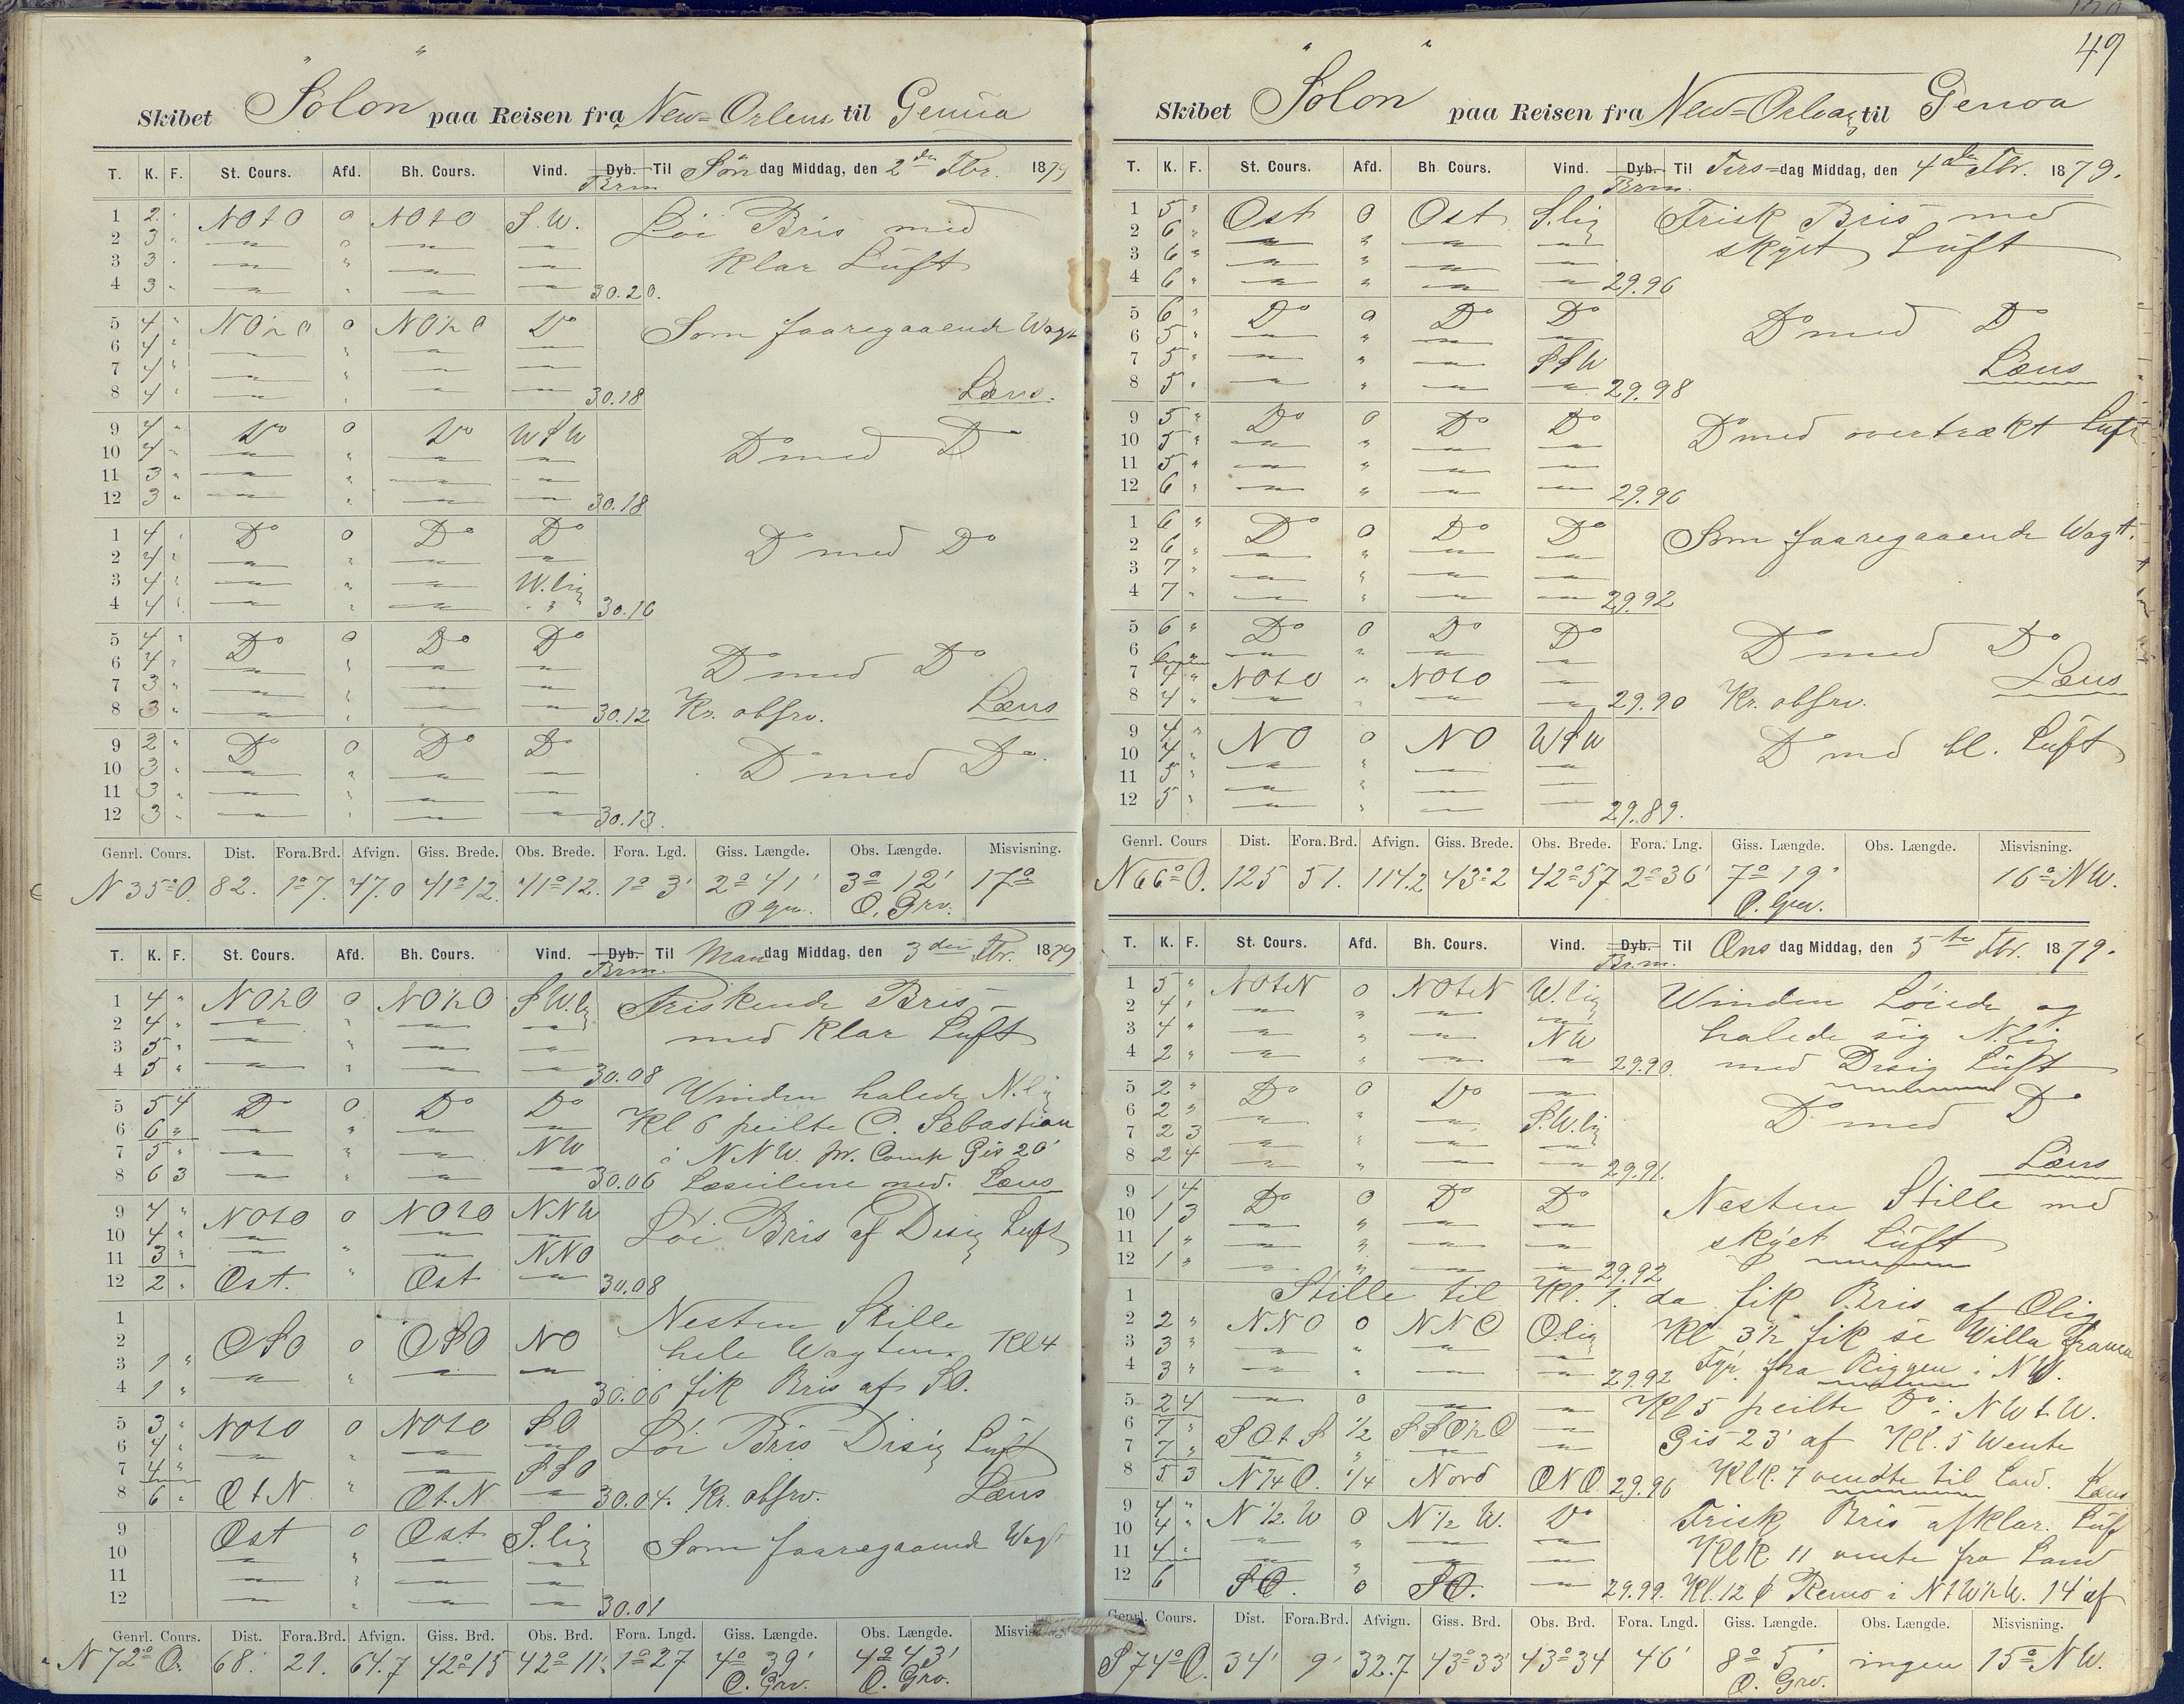 49
Skibet "Solon" paa Reisen fra New-Orlens til Genua
T. K. F. St. Cours. Afd. Bh. Cours. Vind. Dyb. Brm. Til Søn dag Middag, den 2den Fbr. 1879
1 2 " NOtO 0 NOtO S.W. Løi Bris med
2 3 "
3 3 " Klar Luft
4 3 " 30.20.
5 4 " NO½O 0 NO½O Do Som faaregaaende Wagt
6 4 "
7 4 "
8 4 " 30.18 Læns.
9 4 " Do 0 Do WSW Do med Do
10 4 "
11 3 "
12 3 " 30.18
1 4 " Do 0 Do Do Do med Do
2 4 "
3 4 " W.lig
4 4 " 30.16
5 4 " Do 0 Do Do Do med Do
6 4 "
7 3 "
8 3 " 30.12 Kr. obsrv. Læns
9 2 " Do 0 Do Do Do med Do
10 3 "
11 3 "
12 3 " 30.13.
Genrl. Cours. Dist. Fora.Brd. Afvign. Giss. Brede. Obs. Brede. Fora. Lgd. Giss. Længde. Obs. Længde. Misvisning.
N 35° O. 82. 1° 7. 47.0 41° 12. 41° 12. 1° 3' 2° 41' 3° 12' 17°
O. Grv.
T. K. F. St. Cours. Afd. Bh. Cours. Vind. Dyb. Brm. Til Man dag Middag, den 3die Fbr. 1879
1 4 " NO½O 0 NO½O SW.lig Friskende Bris
2 4 " med Klar Luft
3 5 "
4 5 " 30.08
Winden halede N.lig
5 5 4 Do 0 Do Do Kl 6 peilte C. Sebastian
6 6 "
7 5 " NW i NNW. pr. Comp Gis 20'
8 6 3 30.06 Læseilene ned. Læns
9 4 " NOtO 0 NOtO NNW Løi Bris af Disig Luft
10 4 "
11 3 " NNO
12 2 " Ost. " Ost 30.08
1 Nesten Stille
2 OSO 0 OSO NO hele Wagten. Kl 4
3 1 "
4 1 " 30.06 fik Bris af SO.
5 3 " NOtO 0 NOtO SO Løi Bris Disig Luft
6 4 "
7 4 " SSO
8 6 " OtN " OtN 30.04. Kr. obsrv. Læns
9 Ost 0 Ost. S.lig Som faaregaaende Wagt
10
11
12 30.01
Genrl. Cours. Dist. Fora.Brd. Afvign. Giss. Brd. Obs. Brd. Fora. Lngd. Giss. Længde. Obs. Længde.
N 72° O. 68. 21. 64.7 42° 15 42° 11' 1° 27 4° 39' 4° 43'
O. Grv. O. Grv.
Skibet "Solon" paa Reisen fra New-Orleans til Genoa
T. K. F. St. Cours. Afd. Bh. Cours. Vind. Dyb. Brm. Til Tirs-dag Middag, den 4de Fbr. 1879.
1 5 " Ost 0 Ost S.lig Frisk Bris med
2 6 " skyet Luft
3 6 "
4 6 " 29.96
5 6 " Do 0 Do Do Do med Do
6 5 "
7 5 " SSW Læns
8 5 " 29.98
9 5 " Do 0 Do Do Do med overtrækt Luft
10 5 "
11 5 "
12 6 " 29.96
1 6 " Do 0 Do Do Som faaregaaende Wagt.
2 6 "
3 7 "
4 7 " 29.92
5 6 " Do 0 Do Do Do med Do
6 6 "
7 4 " NOtO " NOtO Læns
8 4 " 29.90 Kr. obsrv.
9 4 " NO 0 NO WSW Do med bl. Luft
10 4 "
11 5 "
12 5 " 29.89.
Genrl. Cours Dist. Fora.Brd. Afvign. Giss. Brede. Obs. Brede. Fora. Lng. Giss. Længde. Obs. Længde. Misvisning.
N 66° O. 125 51. 114.2 43° 2 42° 57 2° 36' 7° 19' 16° NW.
O. Grv.
T. K. F. St. Cours. Afd. Bh. Cours. Vind. Dyb. Brm. Til Ons dag Middag, den 5te Fbr. 1879.
1 5 " NOtN 0 NOtN W.lig Winden Løiede og
2 4 "
3 4 " NW halede sig N.lig
4 2 " 29.90. med Disig Luft
5 2 " Do 0 Do Do med Do
6 2 " S.W.lig
7 2 3
8 2 4 29.91. Læns
9 1 4 Do 0 Do Do Nesten Stille med
10 1 3
11 1 " skyet Luft
12 1 " 29.92
1 Stille til Kl. 1. da fik Bris af Olig
2 2 " NNO 0 NNO O.lig Kl 3½ fik se Willa franca
3 3 " Fyr fra Riggen i NW.
4 3 " 29.92
5 2 4 0 Kl 5 peilte Do i NWtW.
6 7 " SOtS ½ SSO½O Gis 23' af Kl. 5 Wente
7 7 "
8 5 3 N¼O. ¼ Nord ONO. 29.96 KlK. 7 vendte til Land. Læns
9 4 " N½W 0 N½W. Do Frisk Bris afklar. Luf
10 4 "
11 4 " KlK 11 vente fra Land
12 6 SO. 0 SO. 29.99. Kl. 12 Remo i NtW½W. 14' af
Genrl. Cours. Dist. Fora.Brd. Afvign. Giss. Brd. Obs. Brd. Fora. Lngd. Giss. Længde. Obs. Længde. Misvisning.
S 74° O. 34' 9' 32.7 43° 33' 43° 34 46' 8° 5' ingen 15° NW.
O. Grv.